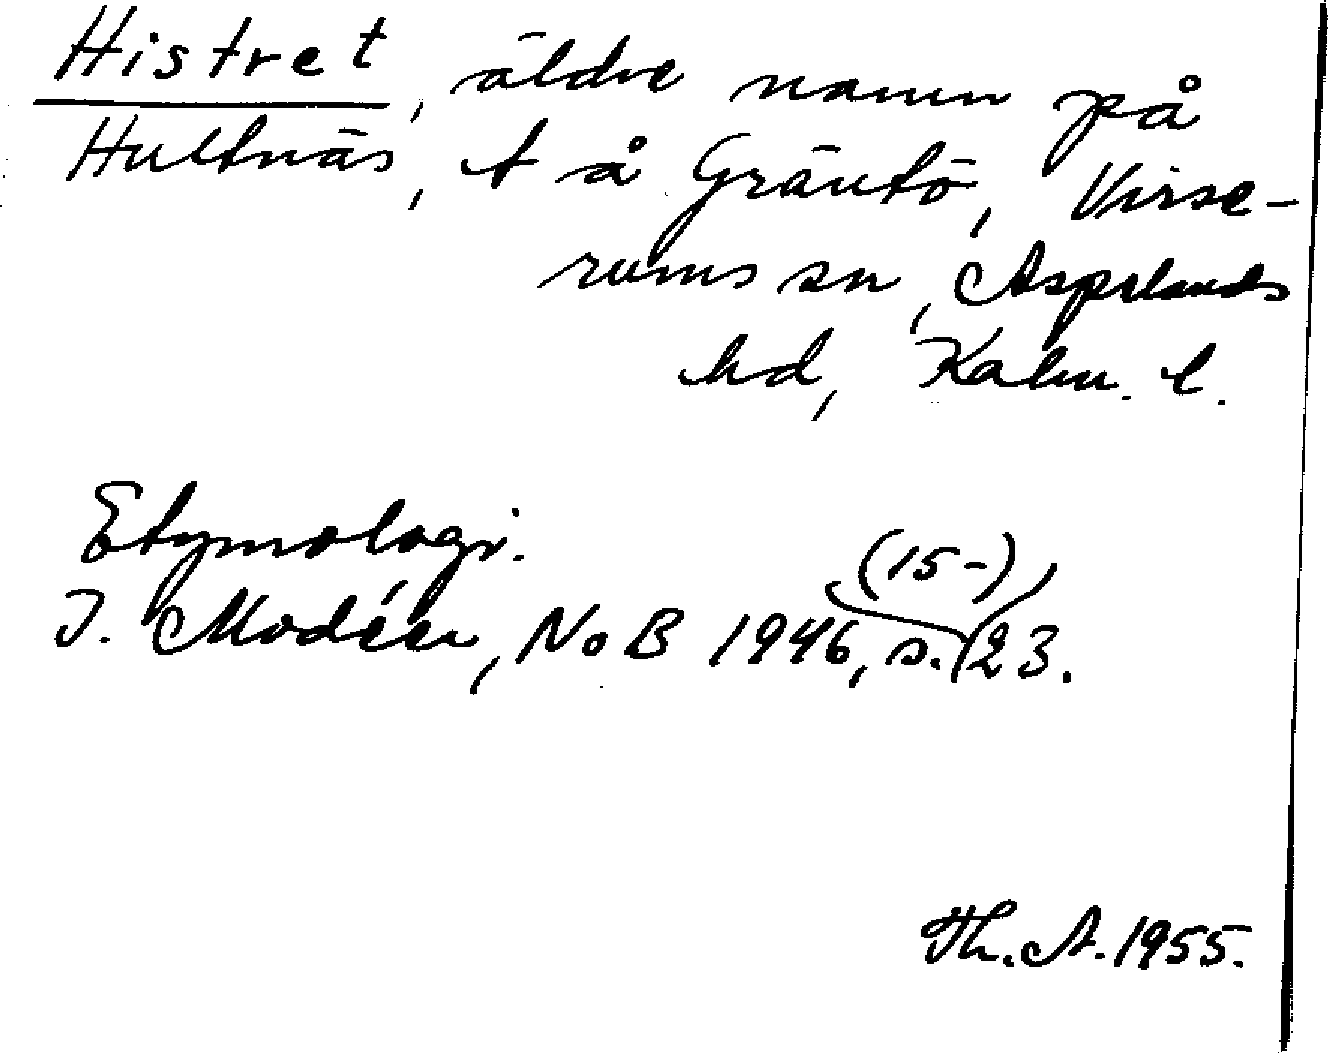 Histret, äldre namn på
Hultnäs, t å Gräntö, Virse-
rums sn, Aspelands
hd, Kalm. l.
Etymologi.
I. Modéer, NoB 1946, s. (15-) 23.
Th. A. 1955.